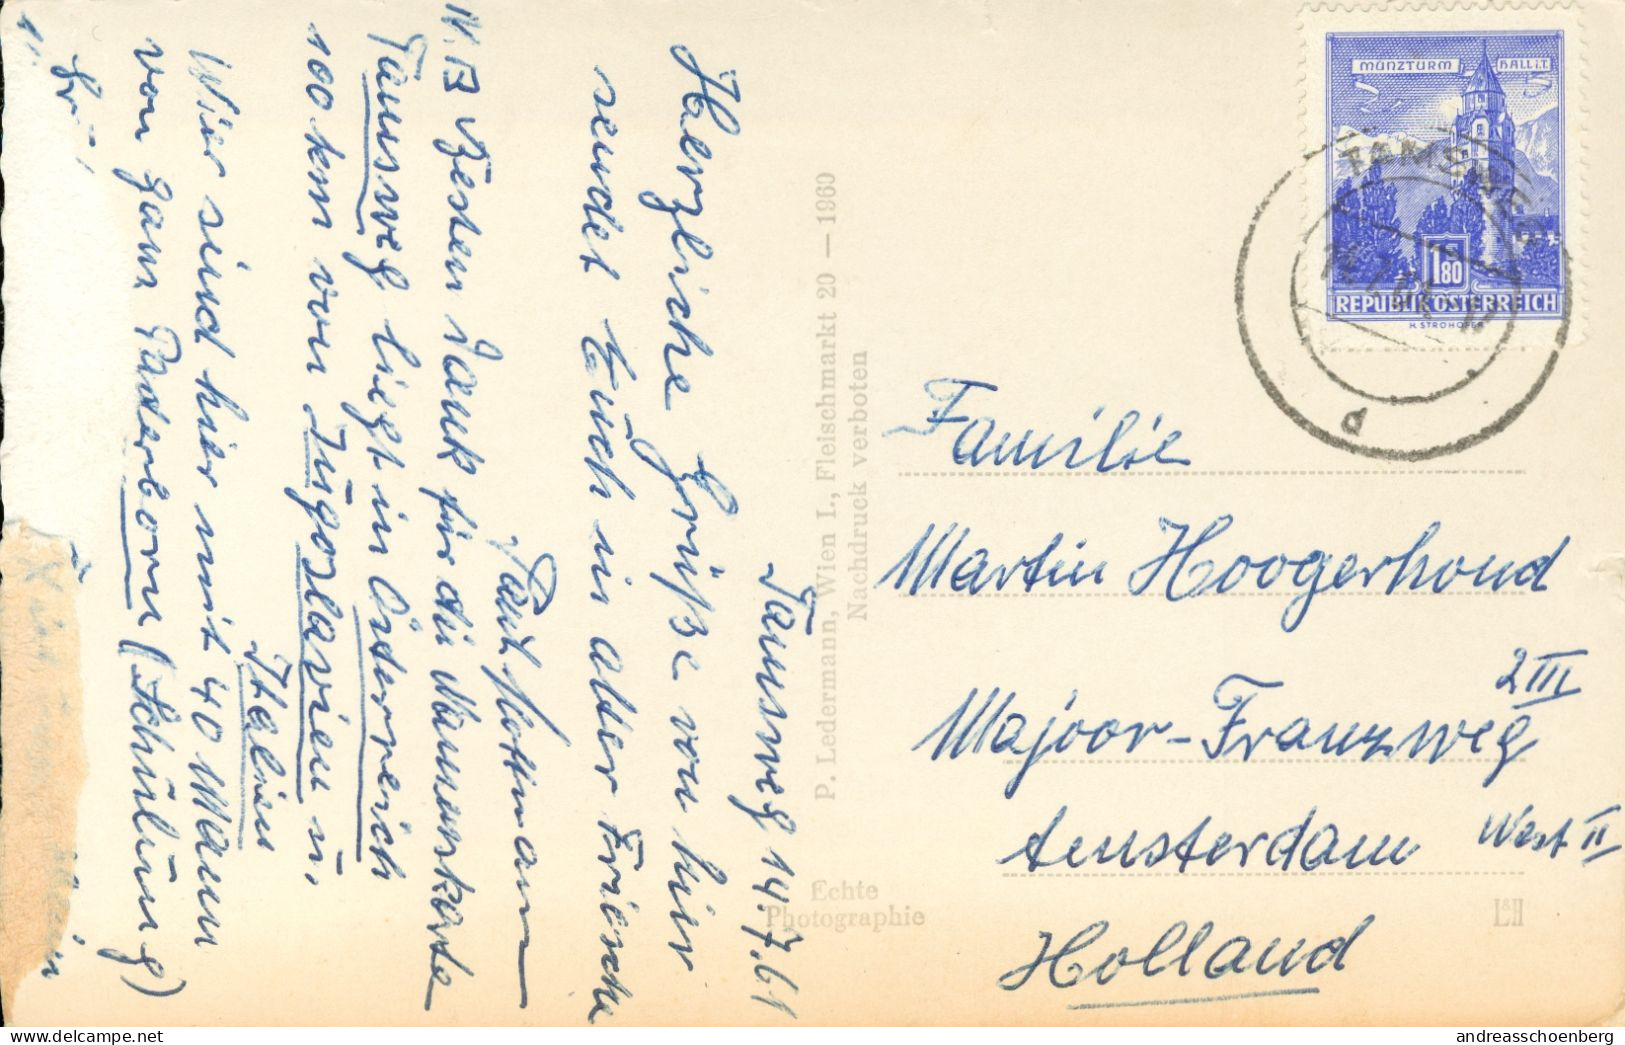 Tamsweg 14.7.61
Herzliche Grüße von hier
sendet Euch in alter Frische
Paul Hoffmann
N.B Besten Dank für die Namenskarte
Tamsweg liegt in Österreich
100 km von Jugoslavien u.
Italien
Wier sind hier mit 40 Mann
von ganz Paderborn (Schulung)
P. Ledermann, Wien I., Fleischmarkt 20 — 1960
Nachdruck verboten
Echte
Photographie
L&H
MÜNZTURM HALL i.T.
1.80
REPUBLIK ÖSTERREICH
H. STROHOFER
TAMSWEG
Familie
Martin Hoogerhoud
Majoor-Franzweg 2III
Amsterdam West II
Holland
andreasschoenberg